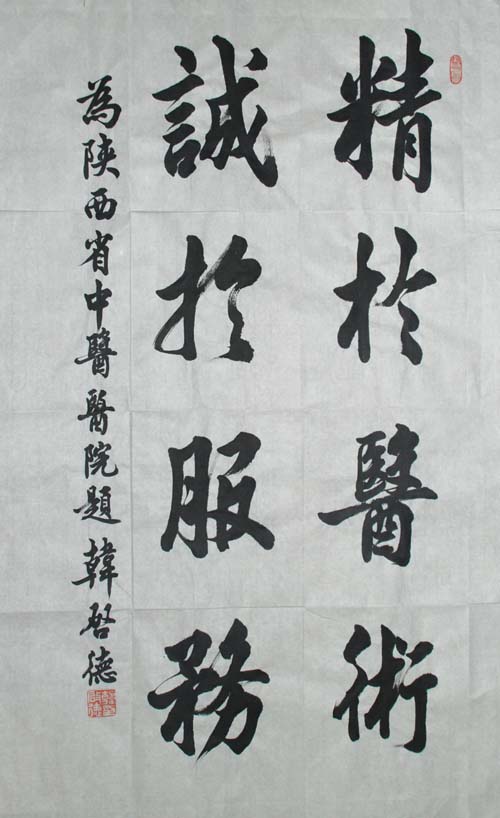 精於醫術
誠於服務
為陝西省中醫醫院題 韓啓德